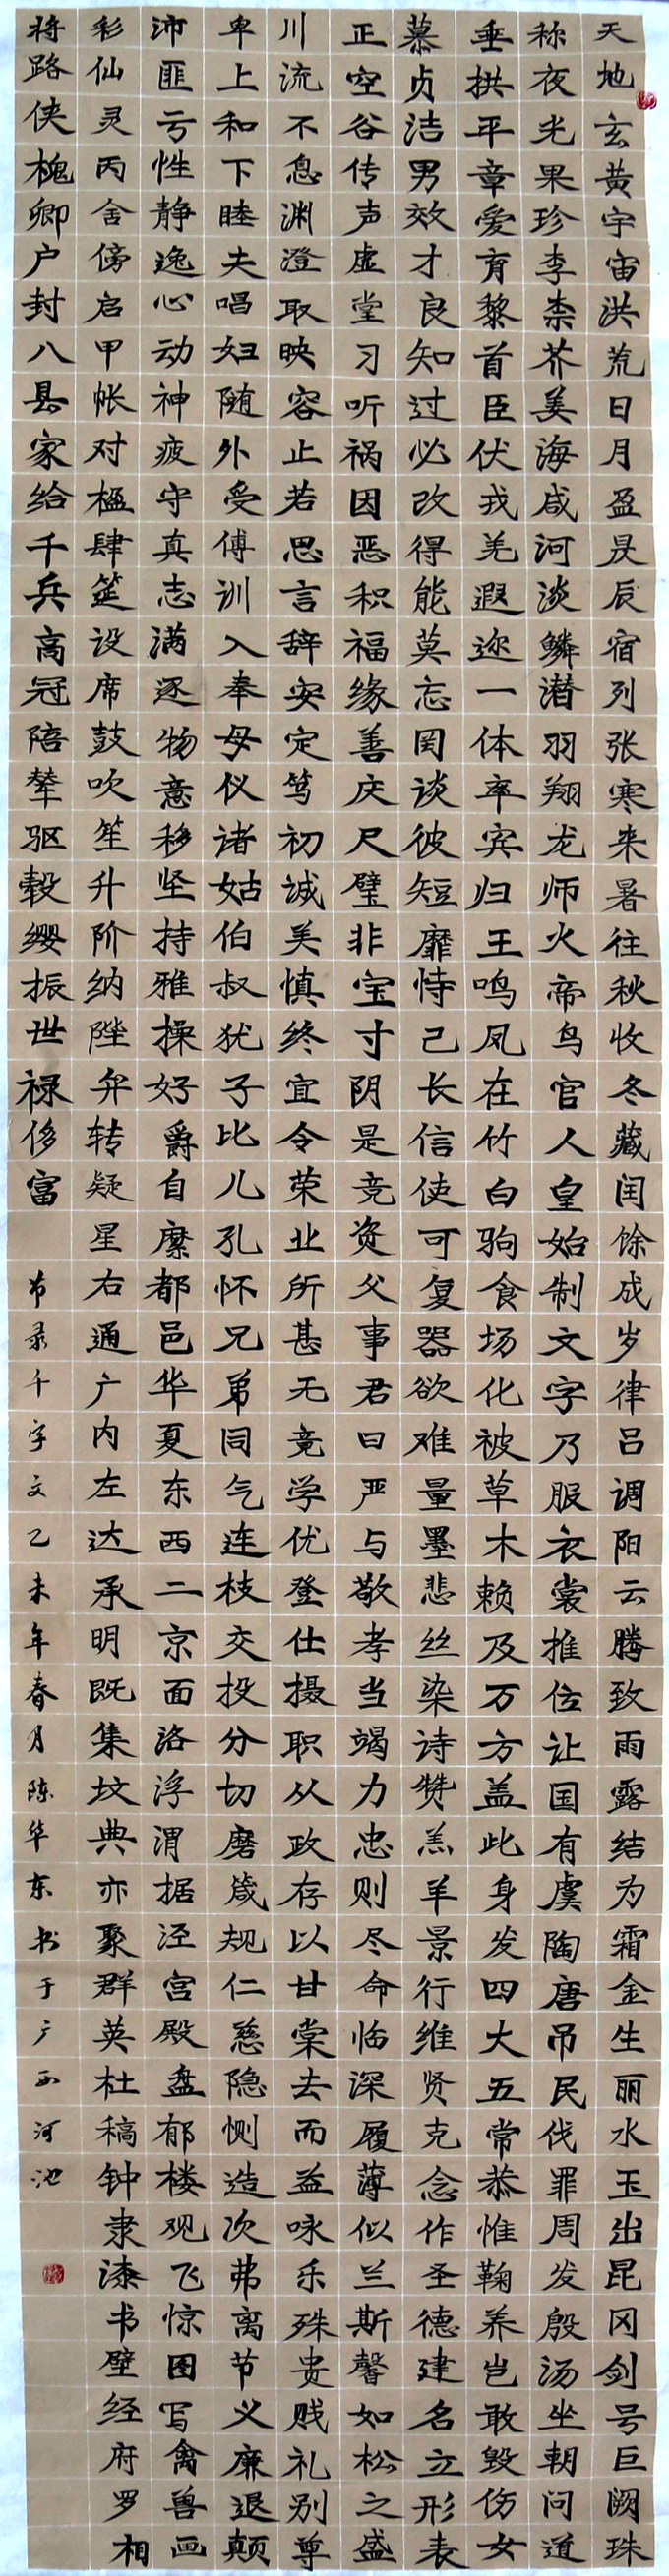 天地玄黄宇宙洪荒日月盈昃辰宿列张寒来暑往秋收冬藏闰馀成岁律吕调阳云腾致雨露结为霜金生丽水玉出昆冈剑号巨阙珠
称夜光果珍李柰芥姜海咸河淡鳞潜羽翔龙师火帝鸟官人皇始制文字乃服衣裳推位让国有虞陶唐吊民伐罪周发殷汤坐朝问道
垂拱平章爱育黎首臣伏戎羌遐迩一体率宾归王鸣凤在竹白驹食场化被草木赖及万方盖此身发四大五常恭惟鞠养岂敢毁伤女
慕贞洁男效才良知过必改得能莫忘罔谈彼短靡恃己长信使可复器欲难量墨悲丝染诗赞羔羊景行维贤克念作圣德建名立形表
正空谷传声虚堂习听祸因恶积福缘善庆尺璧非宝寸阴是竞资父事君曰严与敬孝当竭力忠则尽命临深履薄似兰斯馨如松之盛
川流不息渊澄取映容止若思言辞安定笃初诚美慎终宜令荣业所甚无竟学优登仕摄职从政存以甘棠去而益咏乐殊贵贱礼别尊
卑上和下睦夫唱妇随外受傅训入奉母仪诸姑伯叔犹子比儿孔怀兄弟同气连枝交投分切磨箴规仁慈隐恻造次弗离节义廉退颠
沛匪亏性静逸心动神疲守真志满逐物意移坚持雅操好爵自縻都邑华夏东西二京面洛浮渭据泾宫殿盘郁楼观飞惊图写禽兽画
彩仙灵丙舍傍启甲帐对楹肆筵设席鼓吹笙升阶纳陛弁转疑星右通广内左达承明既集坟典亦聚群英杜稿钟隶漆书壁经府罗相
将路侠槐卿户封八县家给千兵高冠陪辇驱毂缨振世禄侈富
节录千字文乙未年春月陈华东书于广西河池